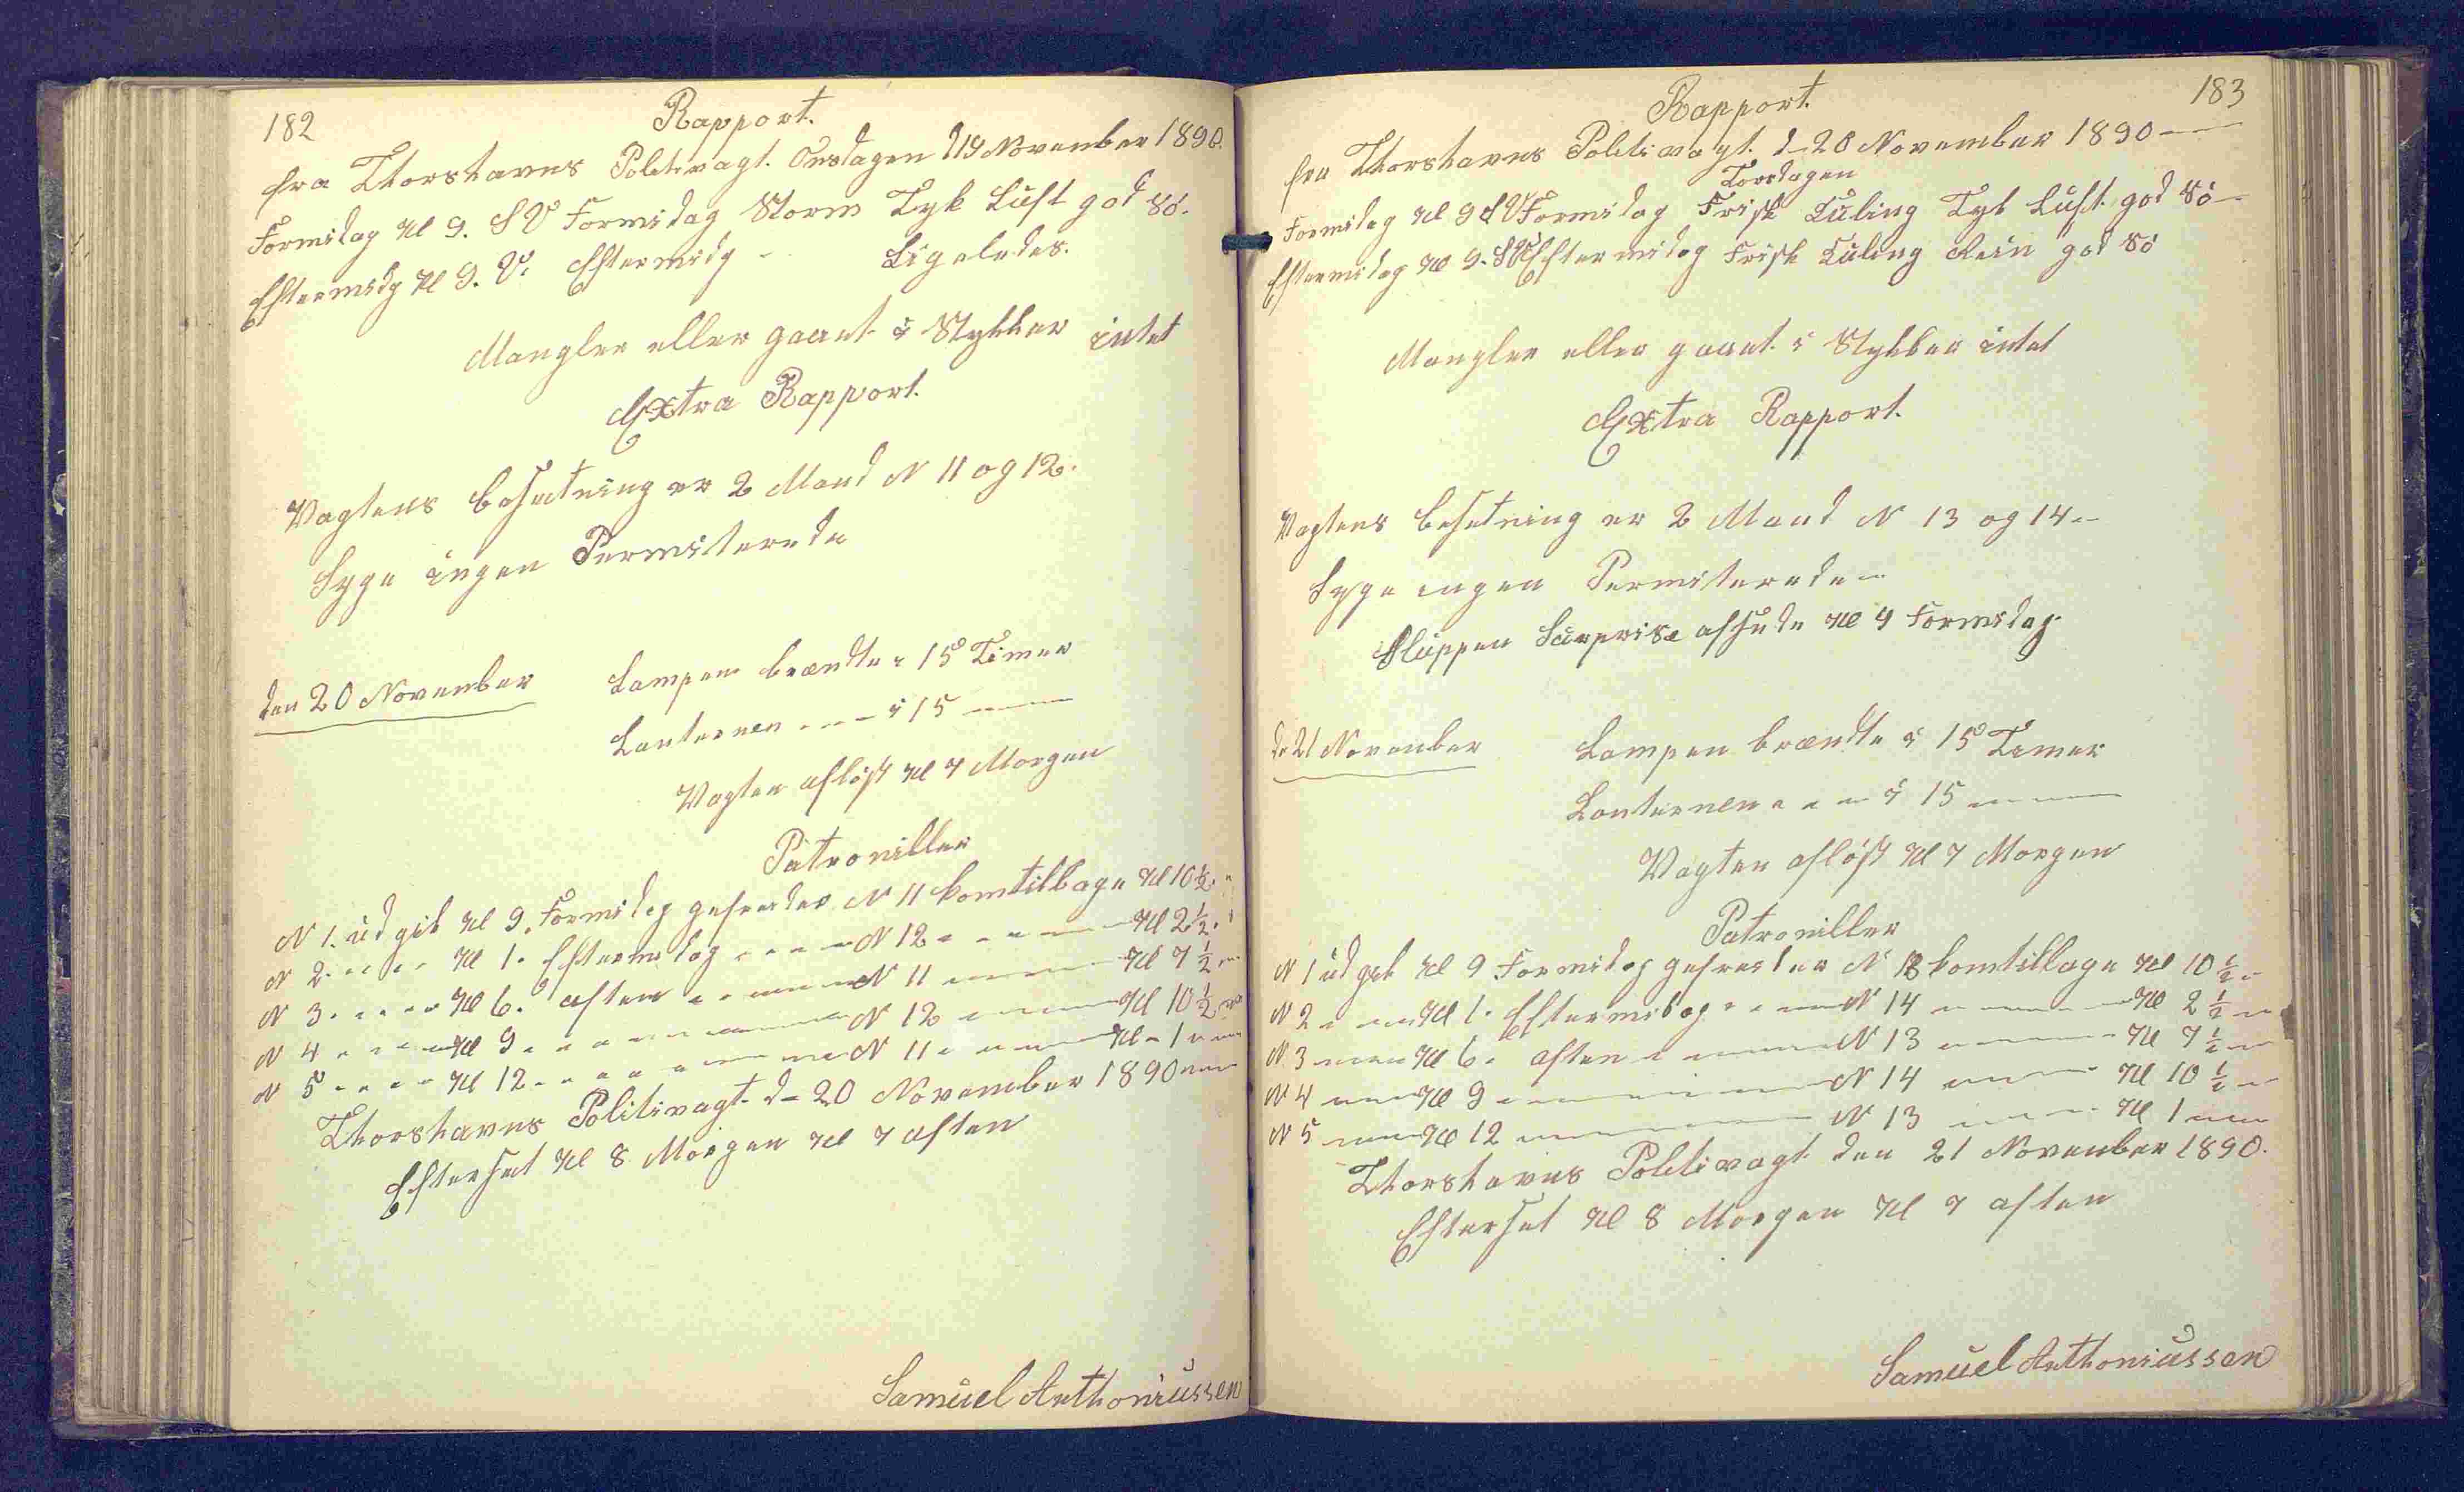 182
Rapport.
fra Thorshavns Politivagt. Onsdagen d 19 November 1890.
Formidag Kl 9. SV Formidag Storm Tyk Luft god Sö.
Eftermidg Kl 9. V. Eftermidg - Ligeledes.
Mangler eller gaaet i Stykker intet
Extra Rapport.
Vagtens besætning er 2 Mand N 11 og 12.
Syge ingen Permiterede
den 20 November Lampen brændte i 15 Timer
Lanternen - - - i 15 —
Vagten aflöst Kl 7 Morgen
Patroniller
N 1. udgik Kl 9. Formidag gefreider N 11 kom tilbage Kl 10 ½.
N 2. - - - Kl 1. Eftermidag - - - N 12 - - - Kl 2 ½.
N 3. - - - Kl 6. aften - - - N 11 - - - Kl 7 ½
N 4 - - - Kl 9 - - - N 12 - - - Kl 10 ½
N 5 - - - Kl 12 - - - N 11 - - - Kl - 1
Thorshavns Politivagt d- 20 November 1890
Efterset Kl 8 Morgen Kl 7 aften
Samuel Anthoniussen
183
Rapport.
fra Thorshavns Politivagt. d- 20 November 1890 —
Torsdagen
Formidag Kl 9 SV Formidag Frisk Kuling Tyk Luft god Sö -
Eftermidag Kl 9. Eftermidag Frisk Kuling Rein god Sö
Mangler eller gaaet i Stykker intet
Extra Rapport.
Vagtens besetning er 2 Mand N 13 og 14 -
Syge ingen Permiterede -
Sluppen Surprise afsejlede Kl 9 Formidag.
d 21 November Lampen brændte i 15 Timer
Lanternen - - - i 15 —
Vagten aflöst Kl 7 Morgen
Patroniller
N 1 udgik Kl 9 Formidag gefreider N 13 kom tilbage Kl 10 ½ -
N 2 - - - Kl 1. Eftermidag - - - N 14 - - - Kl 2 ½ -
N. 3 - - - Kl 6. aften - - - N 13 - - - Kl 7 ½ -
N 4 - - - Kl 9 - - - N 14 - - - Kl 10 ½ -
N 5 - - - Kl 12 - - - N 13 - - - Kl 1 -
Thorshavns Politivagt den 21 November 1890.
Efterset Kl 8 Morgen Kl 7 aften
Samuel Anthoniussen